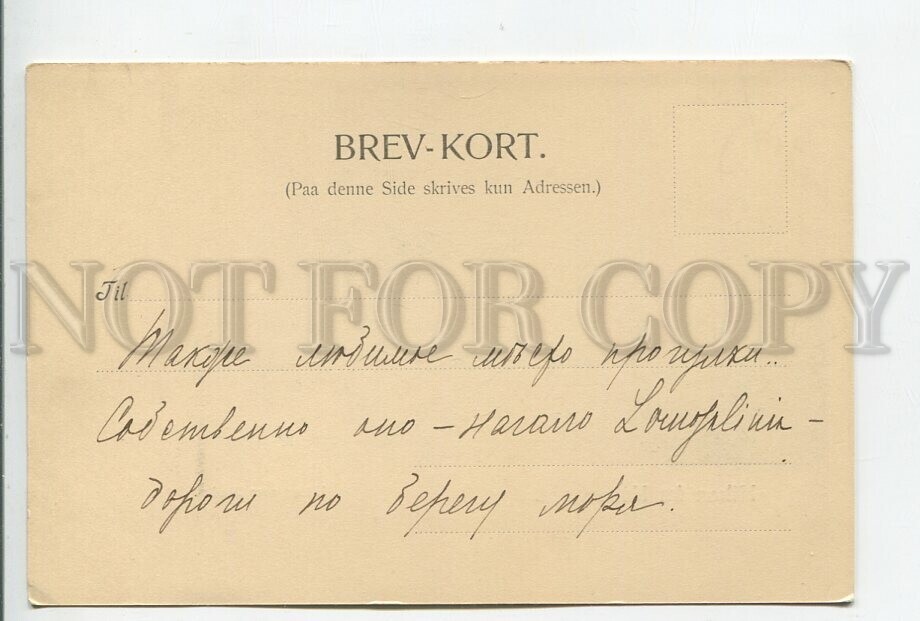 BREV-KORT.
(Paa denne Side skrives kun Adressen.)
NOT FOR COPY
Til
Также любимое мѣсто прогулки..
Собственно оно – начало
дороги по берегу моря.